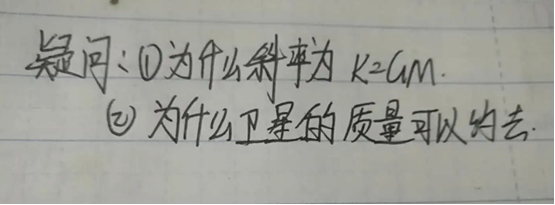 疑问:①为什么斜率为 K=GM.
② 为什么卫星的质量可以约去.